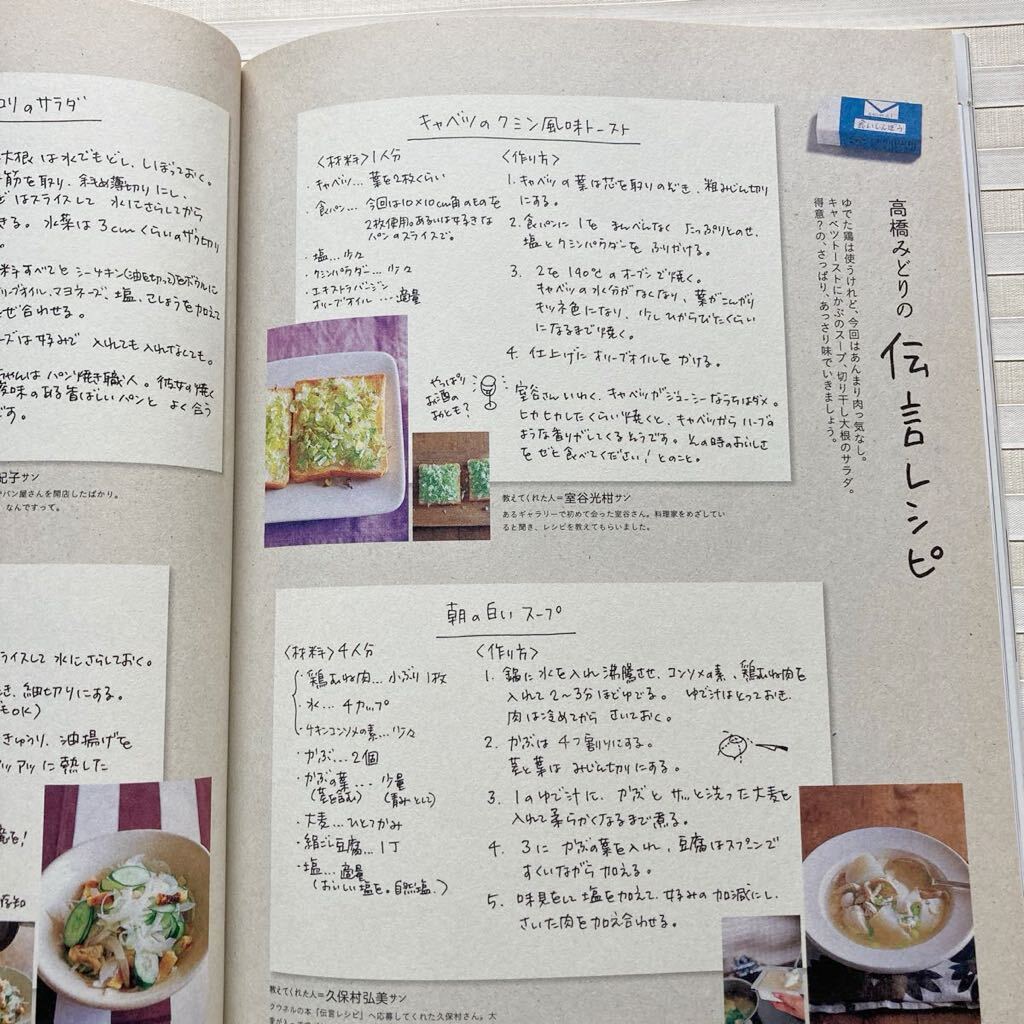 高橋みどりの 伝言レシピ
ゆでた鶏は使うけれど、今回はあんまり肉っ気なし。
キャベツトーストにかぶのスープ、切り干し大根のサラダ。
得意？の、さっぱり、あっさり味でいきましょう。
食いしんぼう
キャベツのクミン風味トースト
〈材料〉1人分
・キャベツ… 葉を2枚くらい
・食パン… 今回は10×10cm角のものを
2枚使用。あるいは好きな
パンのスライスで。
・塩…少々
・クミンパウダー…少々
・エキストラバージン
オリーブオイル……適量
〈作り方〉
1. キャベツの葉は芯を取りのぞき、粗みじん切り
にする。
2. 食パンに1を まんべんなく たっぷりとのせ、
塩とクミンパウダーを ふりかける。
3. 2を190℃のオーブンで焼く。
キャベツの水分がなくなり、葉がこんがり
キツネ色になり、少しひからびたくらい
になるまで焼く。
4. 仕上げに オリーブオイルを かける。
室谷さんいわく、キャベツがジューシーなうちはダメ。
ヒカヒカしたくらい焼くと、キャベツから ハーブの
ような香りがしてくる そうです。その時のおいしさ
をぜひ食べてください！とのこと。
やっぱり
お酒の
おとも？
教えてくれた人＝室谷光柑サン
あるギャラリーで初めて会った室谷さん。料理家をめざしてい
ると聞き、レシピを教えてもらいました。
朝の白いスープ
〈材料〉4人分
・鶏むね肉… 小ぶり1枚
・水… 4カップ
・チキンコンソメの素…少々
・かぶ… 2個
・かぶの葉… 少量
（茎を含む）（青みとして）
・大麦…ひとつかみ
・絹ごし豆腐…1丁
・塩…適量
（おいしい塩を。自然塩。）
〈作り方〉
1. 鍋に水を入れ沸騰させ、コンソメの素、鶏むね肉を
入れて2〜3分ほどゆでる。 ゆで汁はとっておき、
肉は冷めてから さいておく。
2. かぶは 4つ割りにする。
茎と葉は みじん切りにする。
3. 1のゆで汁に、かぶと サッと洗った大麦を
入れて柔らかくなるまで煮る。
4. 3に かぶの葉を入れ、豆腐はスプーンで
すくいながら 加える。
5. 味見をして 塩を加えて、好みの加減にし、
さいた肉を加え合わせる。
教えてくれた人＝久保村弘美サン
クウネルの本「伝言レシピ」へ応募してくれた久保村さん。大
のサラダ
大根 は水でもどし、しぼっておく。
筋を取り、斜め薄切りにし、
はスライスして 水にさらしてから
きる。 水菜は 3cmくらいのざく切り
料すべてと シーチキン(油を切って)をボウルに
リーブオイル、マヨネーズ、塩、こしょうを加えて
ぜ合わせる。
ーズは好みで 入れても入れなくても。
ちゃんは パン焼き職人。彼女の焼く
味のある香ばしいパンと よく合う
です。
紀子サン
パン屋さんを開店したばかり。
なんですって。
ライスして 水にさらしておく。
き、細切りにする。
もOK）
きゅうり、油揚げを
アツアツに熱した